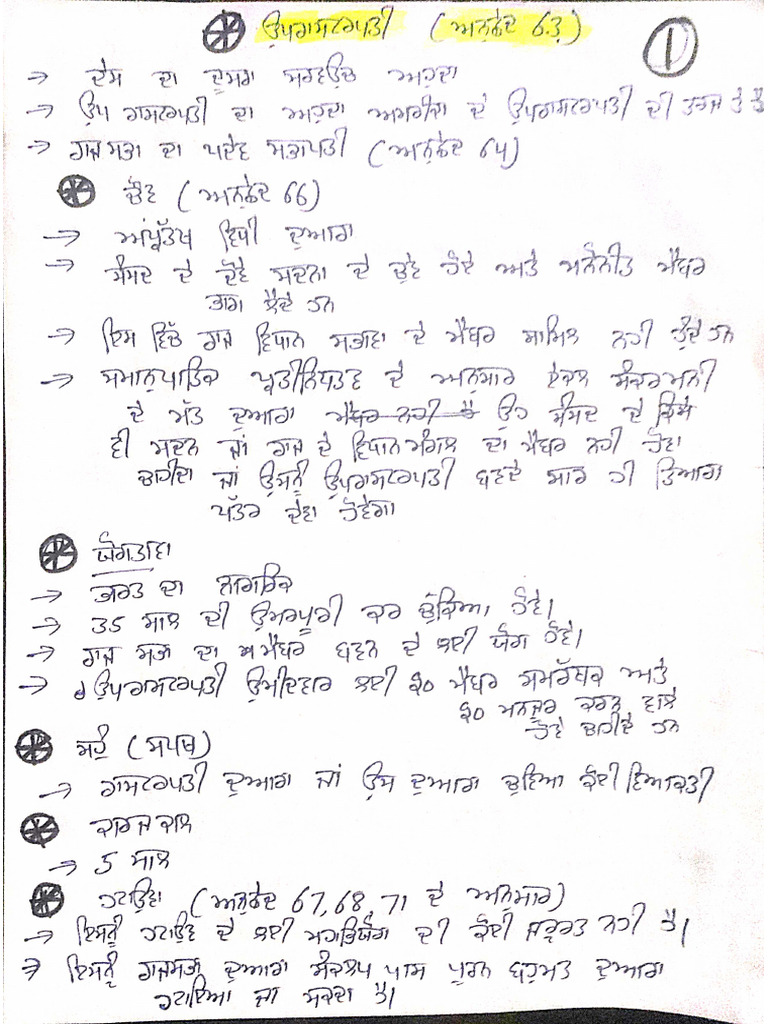 ਉਪਰਾਸਟਰਪਤੀ (ਅਨੁਛੇਦ 63)
1
→ ਦੇਸ ਦਾ ਦੂਸਰਾ ਸਰਵਉਚ ਅਹੁਦਾ
→ ਉਪ ਰਾਸਟਰਪਤੀ ਦਾ ਅਹੁਦਾ ਅਮਰੀਕਾ ਦੇ ਉਪਰਾਸਟਰਪਤੀ ਦੀ ਤਰਜ ਤੇ ਹੈ
→ ਰਾਜ ਸਭਾ ਦਾ ਪਦੇਨ ਸਭਾਪਤੀ (ਅਨੁਛੇਦ 64)
ਚੋਣ (ਅਨੁਛੇਦ 66)
→ ਅਪ੍ਰੱਤਖ ਵਿਧੀ ਦੁਆਰਾ
→ ਸੰਸਦ ਦੇ ਦੋਵੇਂ ਸਦਨਾ ਦੇ ਚੁਣੇ ਹੋਏ ਅਤੇ ਮਨੋਨੀਤ ਮੈਂਬਰ
ਭਾਗ ਲੈਂਦੇ ਹਨ
→ ਇਸ ਵਿੱਚ ਰਾਜ ਵਿਧਾਨ ਸਭਾਵਾ ਦੇ ਮੈਂਬਰ ਸਾਮਿਲ ਨਹੀ ਹੁੰਦੇ ਹਨ
→ ਸਮਾਨੁਪਾਤਿਕ ਪ੍ਰਤੀਨਿਧਤਵ ਦੇ ਅਨੁਸਾਰ ਏਕਲ ਸੰਕਰਮਨੀ
ਦੇ ਮੱਤ ਦੁਆਰਾ ਮੈਂਬਰ ਨਹੀ ਹੈ ਉਹ ਸੰਸਦ ਦੇ ਕਿਸੇ
ਵੀ ਸਦਨ ਜਾਂ ਰਾਜ ਦੇ ਵਿਧਾਨਮੰਡਲ ਦਾ ਮੈਂਬਰ ਨਹੀ ਹੋਣਾ
ਚਾਹੀਦਾ ਜਾਂ ਉਸਨੂੰ ਉਪਰਾਸਟਰਪਤੀ ਬਣਦੇ ਸਾਰ ਹੀ ਤਿਆਗ
ਪੱਤਰ ਦੇਣਾ ਹੋਵੇਗਾ
ਯੋਗਤਾਵਾ
→ ਭਾਰਤ ਦਾ ਨਾਗਰਿਕ
→ 35 ਸਾਲ ਦੀ ਉਮਰ ਪੂਰੀ ਕਰ ਚੁੱਕਿਆ ਹੋਵੇ।
→ ਰਾਜ ਸਭਾ ਦਾ ਮੈਂਬਰ ਬਣਨ ਦੇ ਲਈ ਯੋਗ ਹੋਵੇ।
→ ਉਪਰਾਸਟਰਪਤੀ ਉਮੀਦਵਾਰ ਲਈ 20 ਮੈਂਬਰ ਸਮਰੱਥਕ ਅਤੇ
20 ਮਨਜੂਰ ਕਰਨ ਵਾਲੇ
ਹੋਣੇ ਚਾਹੀਦੇ ਹਨ
ਸਹੁੰ (ਸਪਥ)
→ ਰਾਸਟਰਪਤੀ ਦੁਆਰਾ ਜਾਂ ਉਸ ਦੁਆਰਾ ਚੁਣਿਆ ਕੋਈ ਵਿਅਕਤੀ
ਕਾਰਜਕਾਲ
→ 5 ਸਾਲ
ਹਟਾਉਣਾ (ਅਨੁਛੇਦ 67, 68, 71 ਦੇ ਅਨੁਸਾਰ)
→ ਇਸਨੂੰ ਹਟਾਉਣ ਦੇ ਲਈ ਮਹਾਂਭਿਯੋਗ ਦੀ ਕੋਈ ਜਰੂਰਤ ਨਹੀ ਹੈ।
→ ਇਸਨੂੰ ਰਾਜਸਭਾ ਦੁਆਰਾ ਸੰਕਲਪ ਪਾਸ ਪੂਰਨ ਬਹੁਮਤ ਦੁਆਰਾ
ਹਟਾਇਆ ਜਾ ਸਕਦਾ ਹੈ।